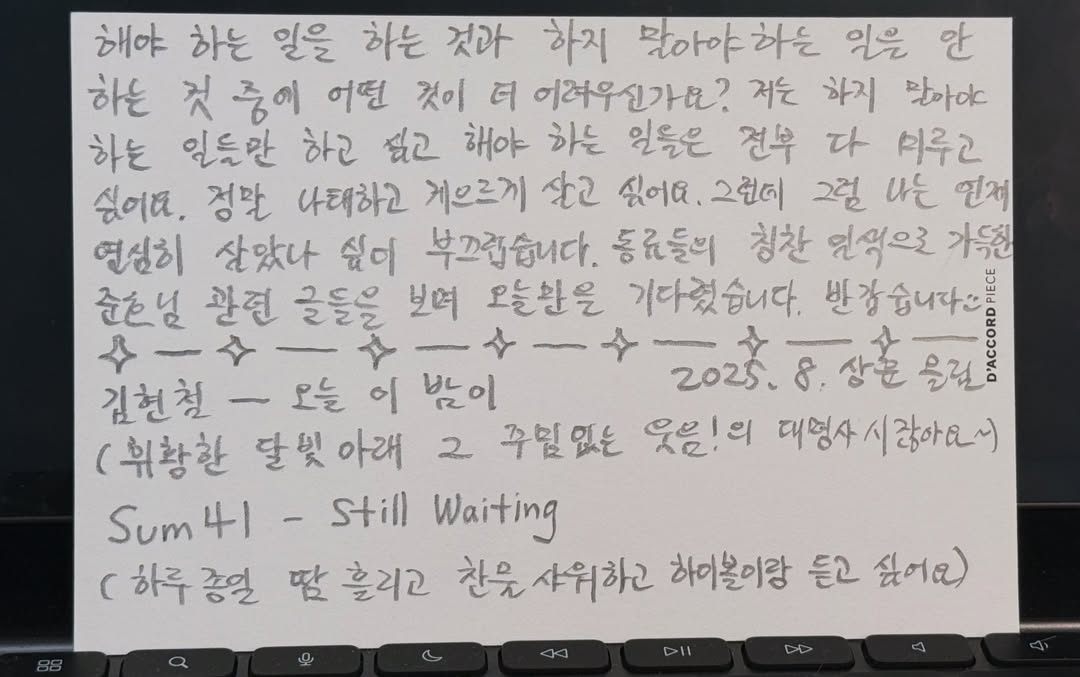 해야 하는 일을 하는 것과 하지 말아야 하는 일은 안
하는 것 중에 어떤 것이 더 어려우신가요? 저는 하지 말아야
하는 일들만 하고 싶고 해야 하는 일들은 전부 다 미루고
싶어요. 정말 나태하고 게으르게 살고 싶어요. 그런데 그럼 나는 언제
열심히 살았나 싶어 부끄럽습니다. 동료들의 칭찬 일색으로 가득한
준호님 관련 글들을 보며 오늘만을 기다렸습니다. 반갑습니다
D'ACCORD PIECE
2025. 8. 상훈 올림
김현철 — 오늘 이 밤이
(휘황한 달빛 아래 그 꾸밈없는 웃음!의 대명사시잖아요~)
Sum 41 - Still Waiting
(하루종일 땀 흘리고 찬물샤워하고 하이볼이랑 듣고 싶어요)